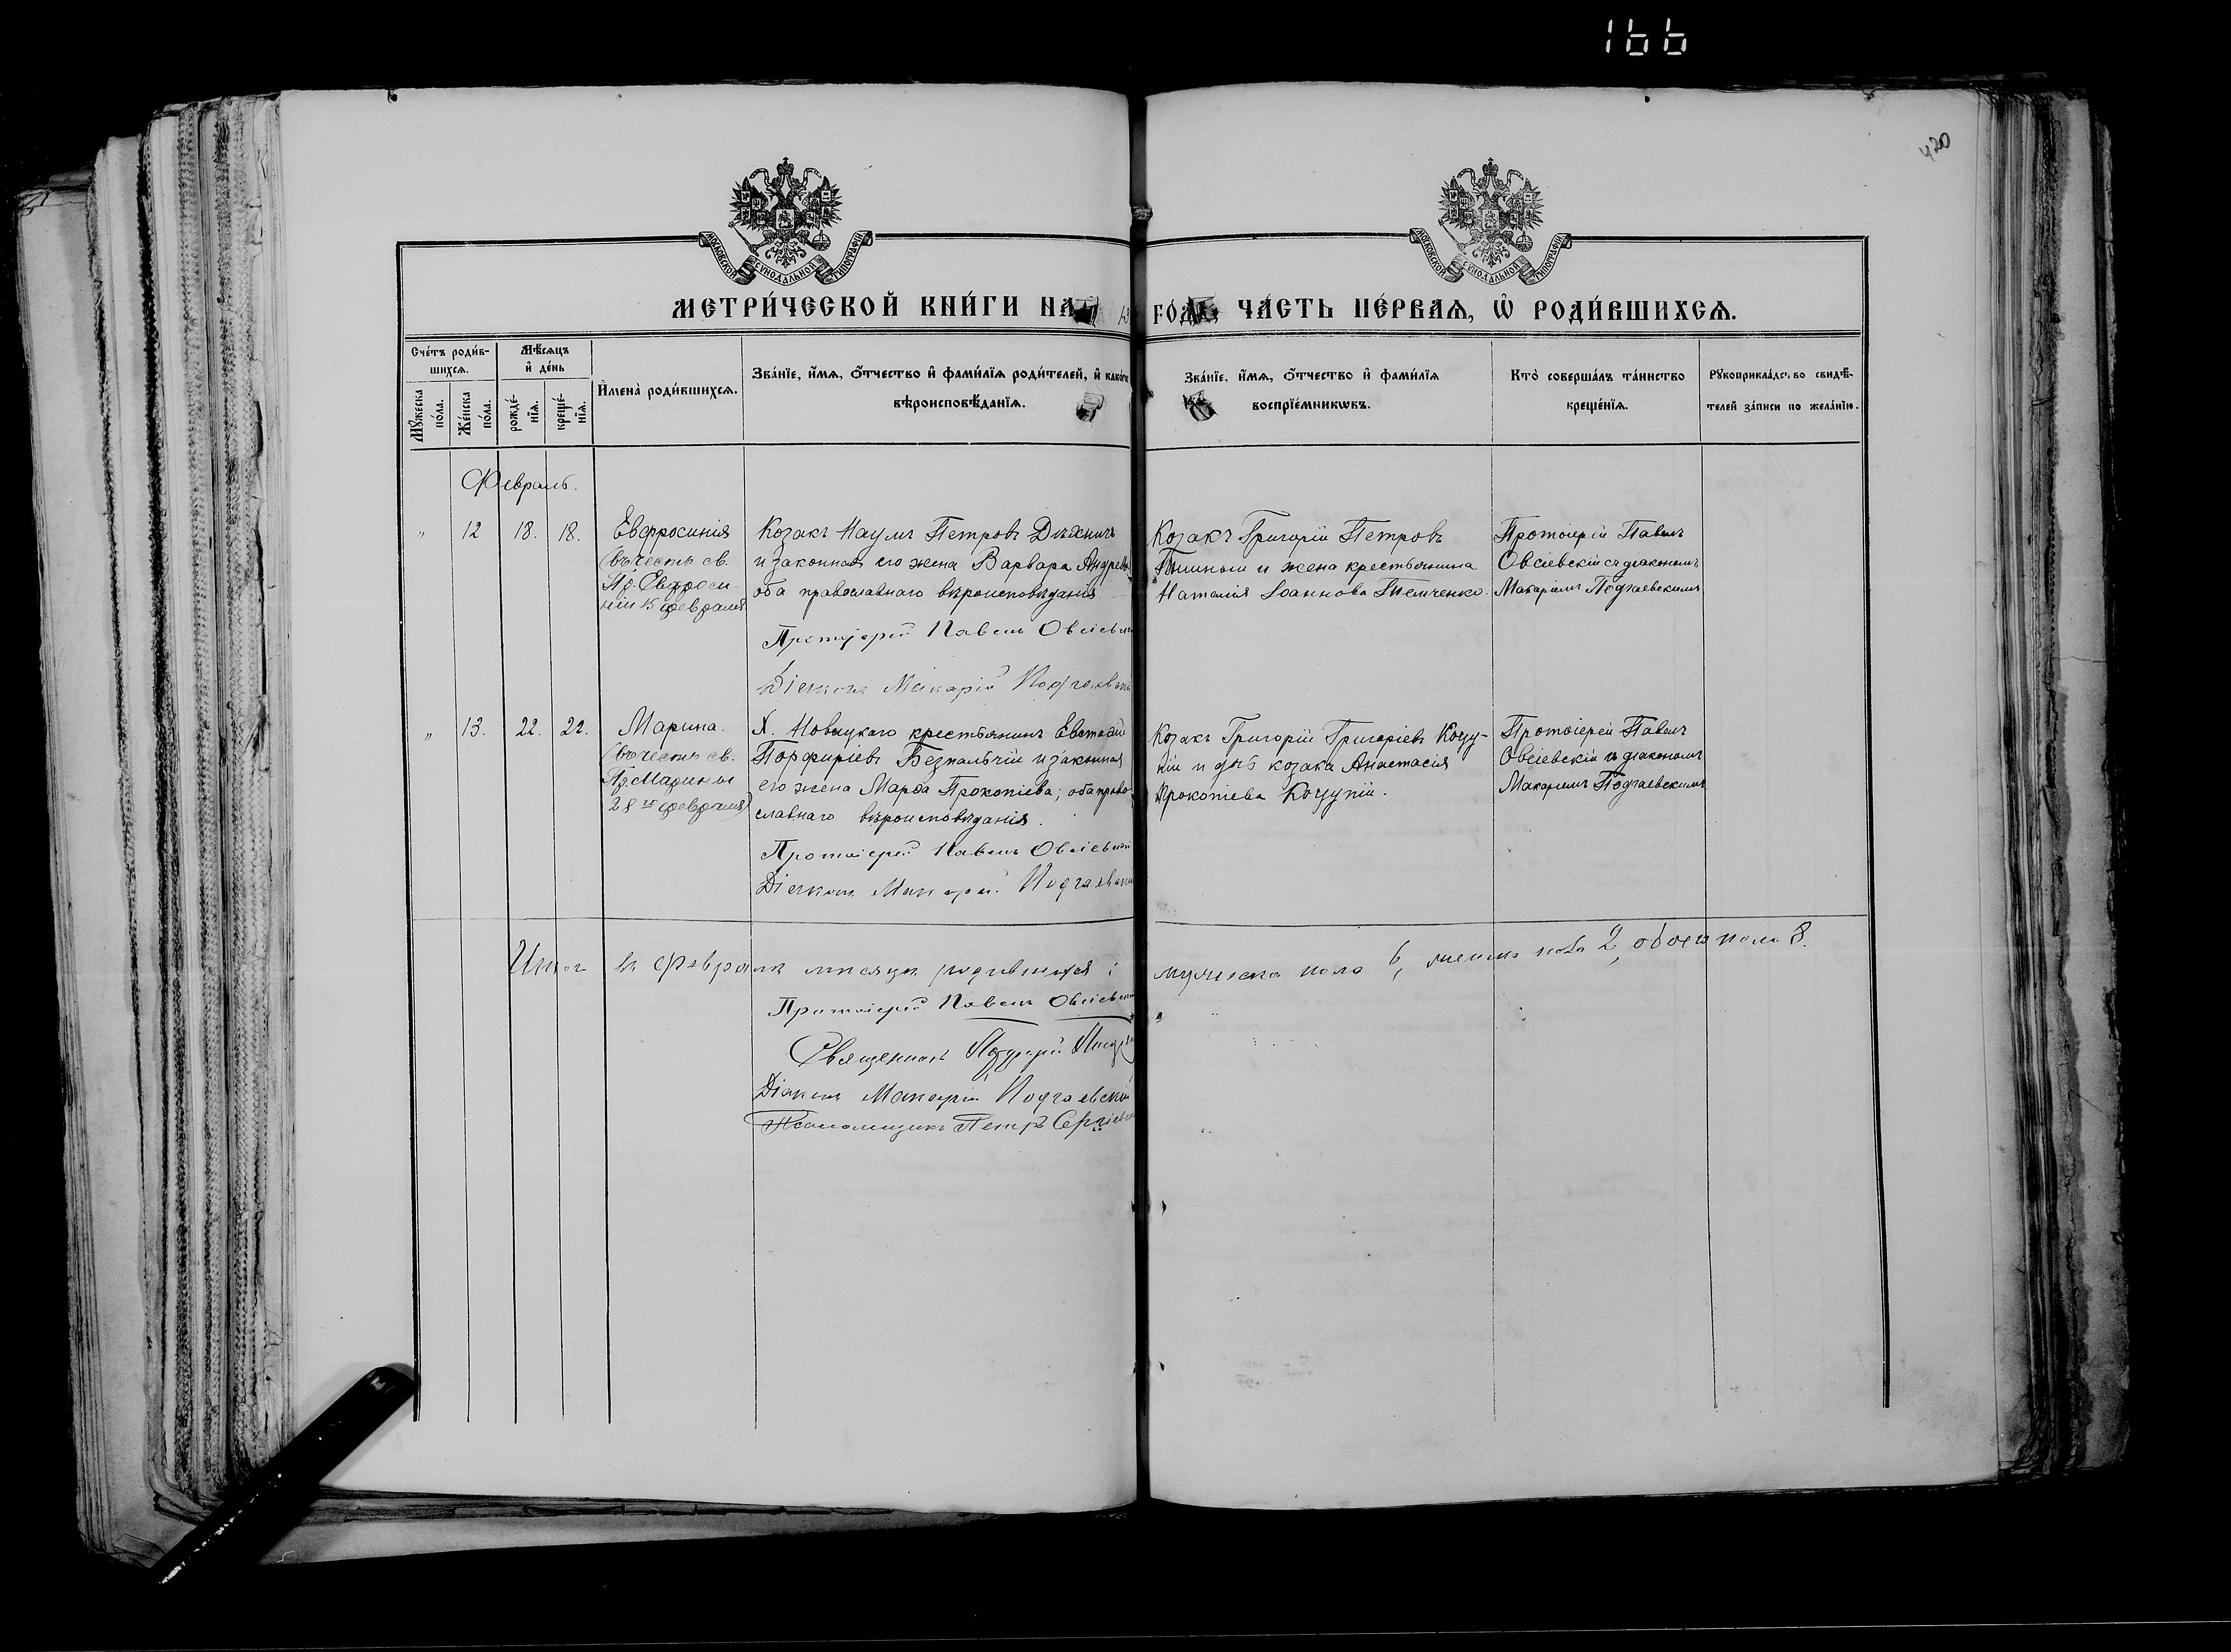 166
420
МОСКОВСКОЙ СУНОДАЛЬНОЙ ТИПОГРАФІИ
МОСКОВСКОЙ СУНОДАЛЬНОЙ ТИПОГРАФІИ
МЕТРИ́ЧЕСКОЙ КНИ́ГИ НА ГО́ДЪ, ЧА́СТЬ ПЕ́РВАѦ, Ѡ҆ РОДИ́ВШИХСѦ.
Сче́тъ роди́в-
шихсѧ.
Мꙋ́жеска по́ла.
Же́нска по́ла.
Мѣ́сѧцъ
и҆ де́нь
рожде́-
нїѧ.
креще́-
нїѧ.
И҆мена̀ роди́вшихсѧ.
Зва́нїе, и҆́мѧ, ѻ҆́тчество и҆ фами́лїѧ роди́телей, и҆ како́гѡ
вѣроисповѣ́данїѧ.
Зва́нїе, и҆́мѧ, ѻ҆́тчество и҆ фами́лїѧ
воспрїе́мникѡвъ.
Кто̀ соверша́лъ та́инство
креще́нїѧ.
Рꙋкоприкла́дство свидѣ́-
телей за́писи по жела́нїю.
Февраль.
" 12 18. 18.
Евфросинія
(въ честь св.
Пр. Евфроси-
ніи 15 февраля
Козакъ Наумъ Петровъ
и законная его жена Варвара Андреев
оба православнаго вѣроисповѣданія
Протоіерей Павелъ Овсіевск
Діаконъ Макарій Подгаевск
Козакъ Григорій Петровъ
и жена крестьянина
Наталія Іоаннова Темченко.
Протоіерей Павелъ
Овсіевскій съ діакономъ
Макаріемъ Подгаевскимъ
" 13. 22. 22.
Марина.
(въ честь св.
Пр. Марины
28го февраля)
Х. Новицкаго крестьянинъ Евстафій
Порфиріевъ Безпальчій и законная
его жена Марѳа Прокопіева; оба право-
славнаго вѣроисповѣданія.
Протоіерей Павелъ Овсіевск
Діаконъ Макарій Подгаевск
Козакъ Григорій Григоріевъ Коцу-
пій и дѣв козака Анастасія
Прокопіева Коцупій.
Протоіерей Павелъ
Овсіевскій съ діакономъ
Макаріемъ Подгаевскимъ
Итого въ Февралѣ мѣсяцѣ родившихся: мужеска пола 6, женска пола 2, обоего пола 8.
Протоіерей Павелъ Овсіевск
Священникъ
Діаконъ Макарій Подгаевскій
Псаломщикъ Петръ Сергіевск